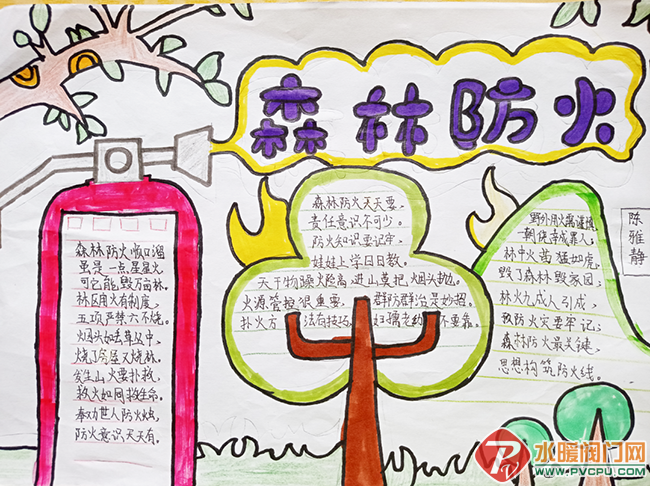 森林防火
森林防火顺口溜
虽是一点星星火
可它能毁万亩林。
林区用火有制度,
五项严禁六不烧。
烟头如丢草丛中,
烧了冬昼又烧林。
发生山火要扑救,
救火如同救生命。
奉劝世人防火烛,
防火意识天天有。
森林防火天天要,
责任意识不可少。
防火知识要记牢,
娃娃上学日日数。
天干物燥火险高,进山莫把烟头抛。
火源管控很重要,群防群治是妙招。
扑火方法有技巧,妇孺老幼不要靠。
野外用火需谨慎,
一朝使成罪人;
林中火苗猛如虎,
毁了森林毁家园;
林火九成人引成,
救防火灾要牢记;
森林防火最关键,
思想构筑防火线。
陈雅静
水暖阀门网
WWW.PVCPU.COM